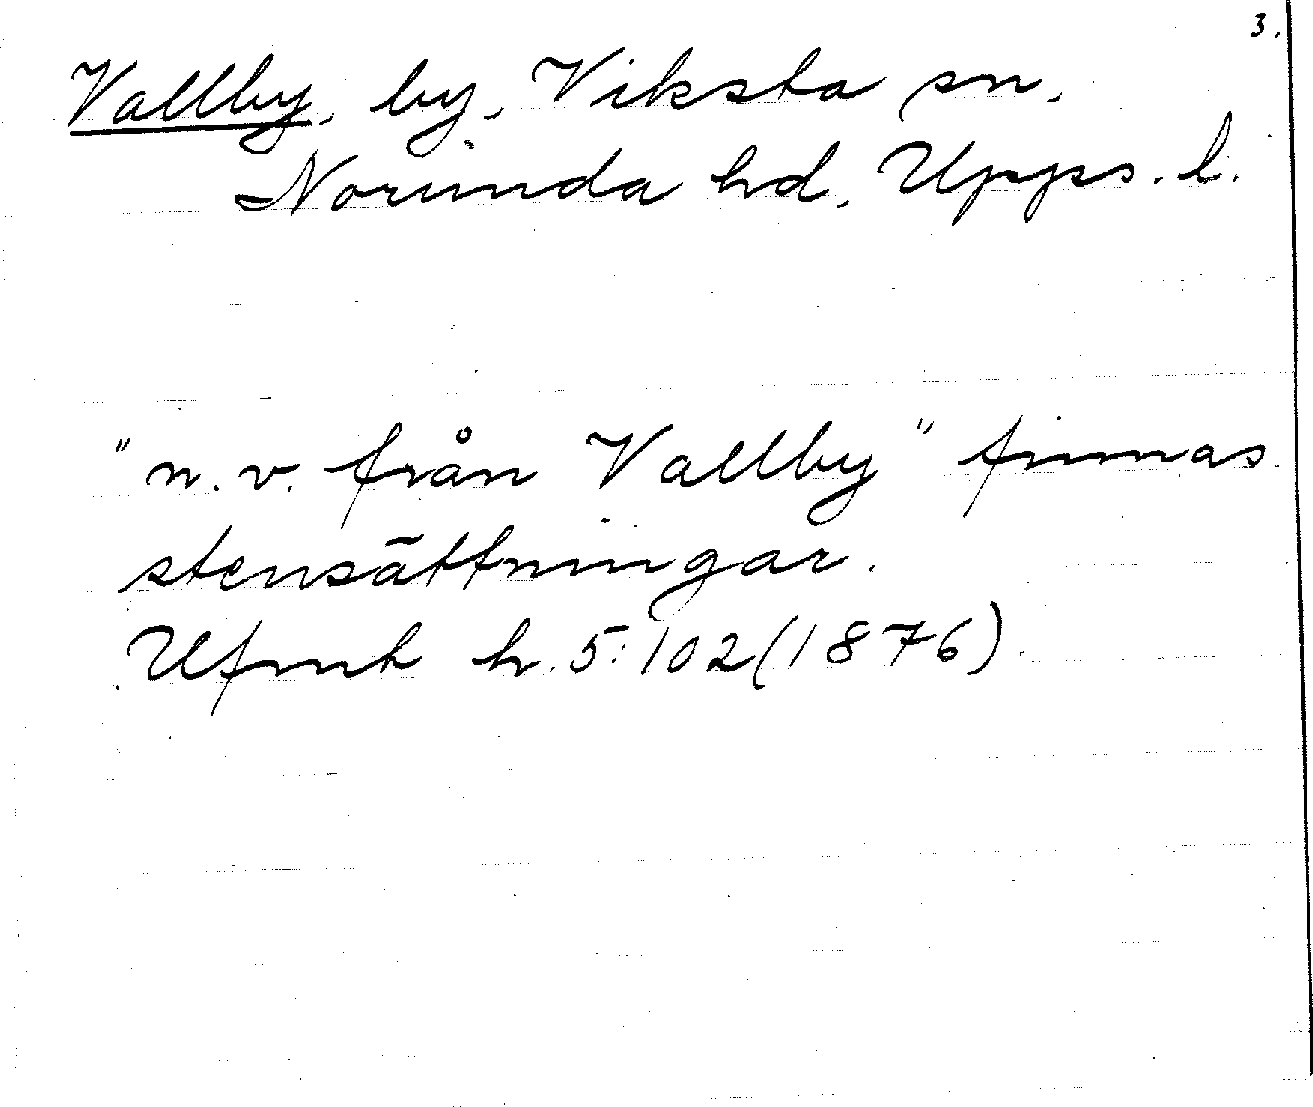 3.
Vallby, by, Viksta sn,
Norunda hd, Upps. l.
"n.v. från Vallby" finnas
stensättningar.
Ufmh h.5:102(1876)